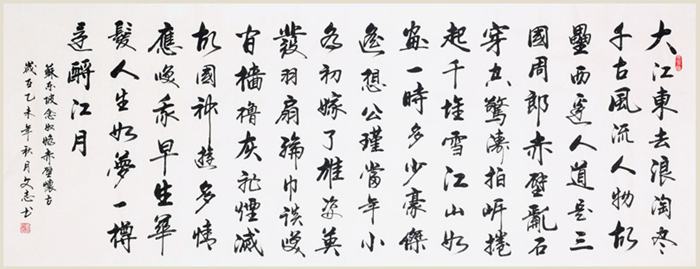 大江東去浪淘尽
千古風流人物故
壘西邊人道是三
國周郎赤壁亂石
穿空驚濤拍岸捲
起千堆雪江山如
画一時多少豪傑
遙想公瑾當年小
喬初嫁了雄姿英
發羽扇綸巾談笑
間檣櫓灰飛煙滅
故國神遊多情
應笑我早生華
髮人生如夢一樽
還酹江月
蘇東坡念奴嬌赤壁懷古
歲在乙未年秋月文志书